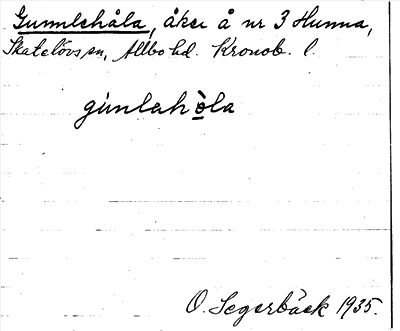 Gunnlehåla, åker å nr 3 Hunna,
Skatelövs sn, Allbo hd. Kronob. l.
gúnlahòla
O. Segerbäck 1935.